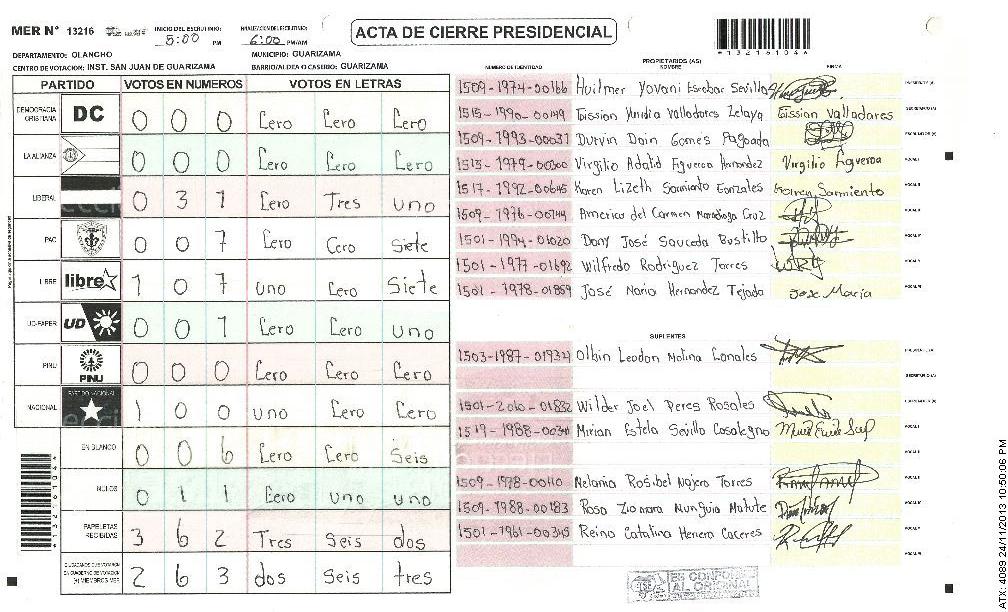 MER N° 13216 INICIO DEL ESCRUTINIO: 5:00 PM 6:00 PM/AM
ACTA DE CIERRE PRESIDENCIAL
*13216104*
DEPARTAMENTO: OLANCHO MUNICIPIO: GUARIZAMA
CENTRO DE VOTACION: INST. SAN JUAN DE GUARIZAMA BARRIO/ALDEA O CASERIO: GUARIZAMA
PARTIDO VOTOS EN NUMEROS VOTOS EN LETRAS
DEMOCRACIA CRISTIANA DC 0 0 0 Cero Cero Cero
LA ALIANZA 0 0 0 Cero Cero Cero
LIBERAL 0 3 1 Cero Tres uno
PAC 0 0 7 Cero Cero Siete
LIBRE libre 1 0 7 uno Cero Siete
UD-FAPER UD 0 0 1 Cero Cero uno
PINU PINU 0 0 0 Cero Cero Cero
NACIONAL PARTIDO NACIONAL 1 0 0 uno Cero Cero
EN BLANCO 0 0 6 Cero Cero Seis
NULOS 0 1 1 Cero uno uno
PAPELETAS RECIBIDAS 3 6 2 Tres Seis dos
CIUDADANOS QUE VOTARON EN CUADERNO DE VOTACION (+) MIEMBROS MER 2 6 3 dos Seis tres
NUMERO DE IDENTIDAD PROPIETARIOS (AS) NOMBRE FIRMA
1509-1974-00166 Huilmer Yovani Escobar Sevilla
1515-1990-00149 Valladares Zelaya Valladares
1509-1993-00031 Durvin Dain Gomes
1515-1979-00300 Virgilio Adalid Figueroa Hernandez Virgilio Figueroa
1517-1992-00645 Karen Lizeth Sarmiento Gonzales Karen Sarmiento
1509-1976-00144 America del Carmen Cruz
1501-1994-01020 Dany José Sauceda Bustillo
1501-1977-01692 Wilfredo Rodriguez Torres
1501-1978-01859 José Mario Hernandez Tejada Jose Maria
SUPLENTES
1503-1987-01934 Olbin Leodan Molina Canales
1501-2010-01832 Wilder Joel Peres Rosales
1519-1988-00341 Mirian Estela Sevilla
1509-1978-00110 Melania Rosibel Najera Torres
1509-1988-00183 Rosa Ziomara Munguia Matute
1501-1961-00345 Reina Catalina Herrera Caceres
ES CONFORME AL ORIGINAL
ATX: 4089 24/11/2013 10:50:06 PM